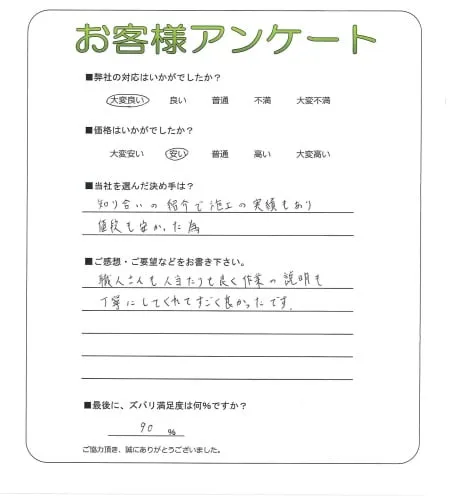 お客様アンケート
■弊社の対応はいかがでしたか？
大変良い 良い 普通 不満 大変不満
■価格はいかがでしたか？
大変安い 安い 普通 高い 大変高い
■当社を選んだ決め手は？
知り合いの紹介で施工の実績もあり
値段も安かった為
■ご感想・ご要望などをお書き下さい。
職人さんも人当たりも良く作業の説明も
丁寧にしてくれてすごく良かったです。
■最後に、ズバリ満足度は何％ですか？
90 ％
ご協力頂き、誠にありがとうございました。